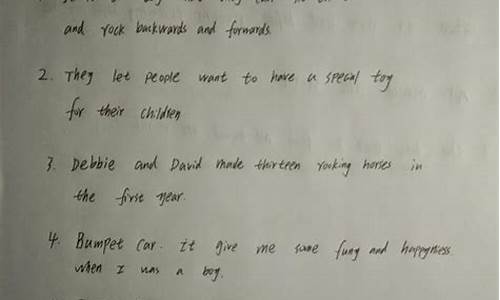 and rock backwards and forwards.
2. They let people want to have a special toy
for their children
3. Debbie and David made thirteen rocking horses in
the first year.
4. Bumpet Car. it give me some fung and happyness
when I was a boy.